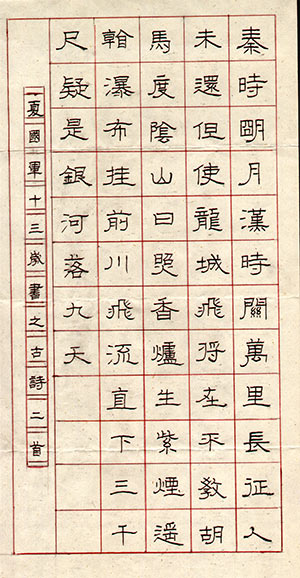 秦時明月漢時關萬里長征人
未還但使龍城飛將在不教胡
馬度陰山日照香爐生紫煙遙
看瀑布挂前川飛流直下三千
尺疑是銀河落九天
夏國軍十三歲書之古詩二首